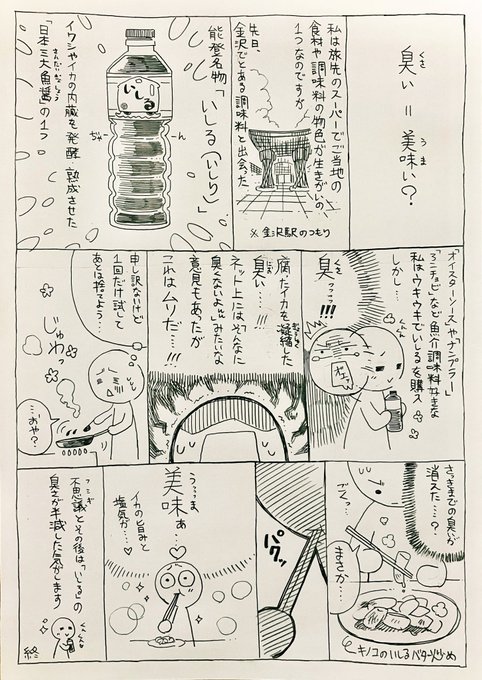 臭い=美味い?
くさ
うま
私は旅先のスーパーでご当地の
食料や調味料の物色が生きがいの
1つなのですが
先日、
金沢でとある調味料と出会った
※金沢駅のつもり
能登名物「いしる(いしり)」
いしる
ぢゃ
ーん
イワシやイカの内臓を発酵・熟成させた
「日本三大魚醤」の1つ
「オイスターソース」や「ナンプラー」
「アンチョビ」など魚介調味料好きな
私はウキウキでいしるを購入
しかし…
くんくん
臭ッッッッ!!!
くさ
オエ
腐ったイカを凝縮した
臭い…!!!
にお
ネット上には「そんなに
臭くないよ」みたいな
意見もあったが
これはムリだ…!!!
申し訳ないけど
1回だけ試して
あとは捨てよう…
じゅわっ
…おや?
さっきまでの臭いが
消えた…?
ゴク…
まさか…
キノコのいしるバター炒め
パクッ
美味ぁ…♡
イカの旨みと
塩気が…♡
不思議とその後は「いしる」の
フシギ
臭さが半減した気がします
くんくん
終